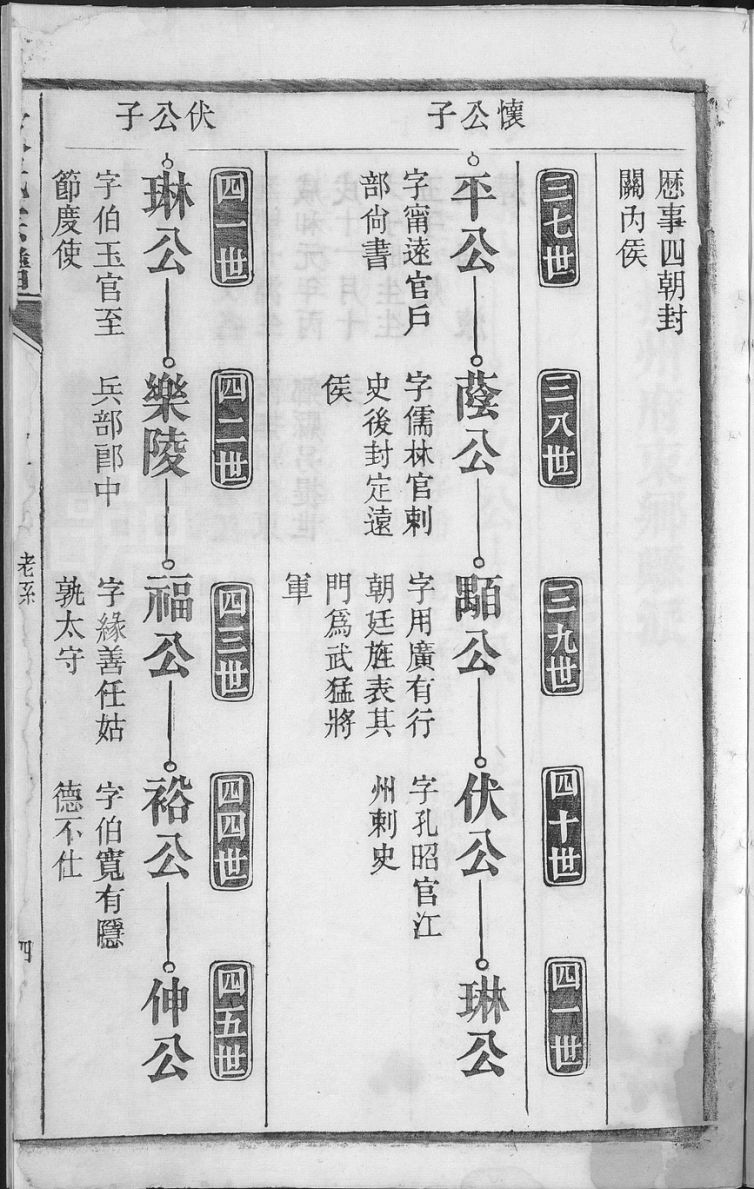 歷事四朝封
關內侯
三七世
三八世
三九世
四十世
四一世
懷公子
平公
字甯遠官戶
部尚書
蔭公
字儒林官刺
史後封定遠
侯
顕公
字用廣有行
朝廷旌表其
門爲武猛將
軍
伏公
字孔昭官江
州刺史
琳公
四一世
四二世
四三世
四四世
四五世
伏公子
琳公
字伯玉官至
節度使
樂陵
兵部郎中
福公
字緣善任姑
孰太守
裕公
字伯寬有隱
德不仕
伸公
老系
四